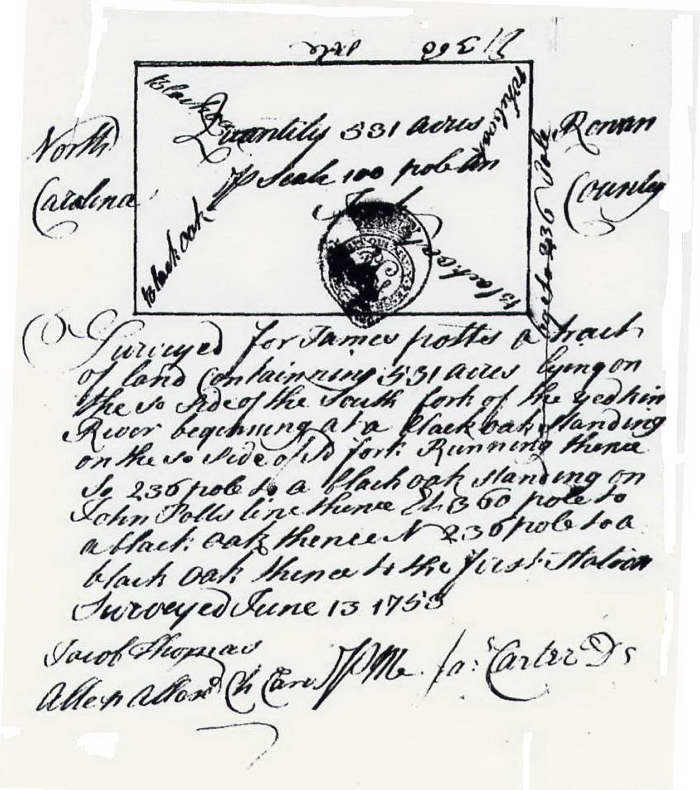 360
Black Oak
Quantity 531 acres
North
Carolina
Rowan
County
p Scale 100 pole an
In
Black Oak
Black oak
236 Pole
Surveyed for James potts a tract
of land Containning 531 acres lying on
the so side of the South fork of the yedkin
River beginning at a black oak standing
on the so side of sd fork Running thence
So 236 pole to a black oak standing on
John Potts line thence Et 360 pole to
a black oak thence N 236 pole to a
black oak thence to the first Station
Surveyed June 13 1758
Jacob Thomas
Allen Ch Car p Me Ja: Carter Ds